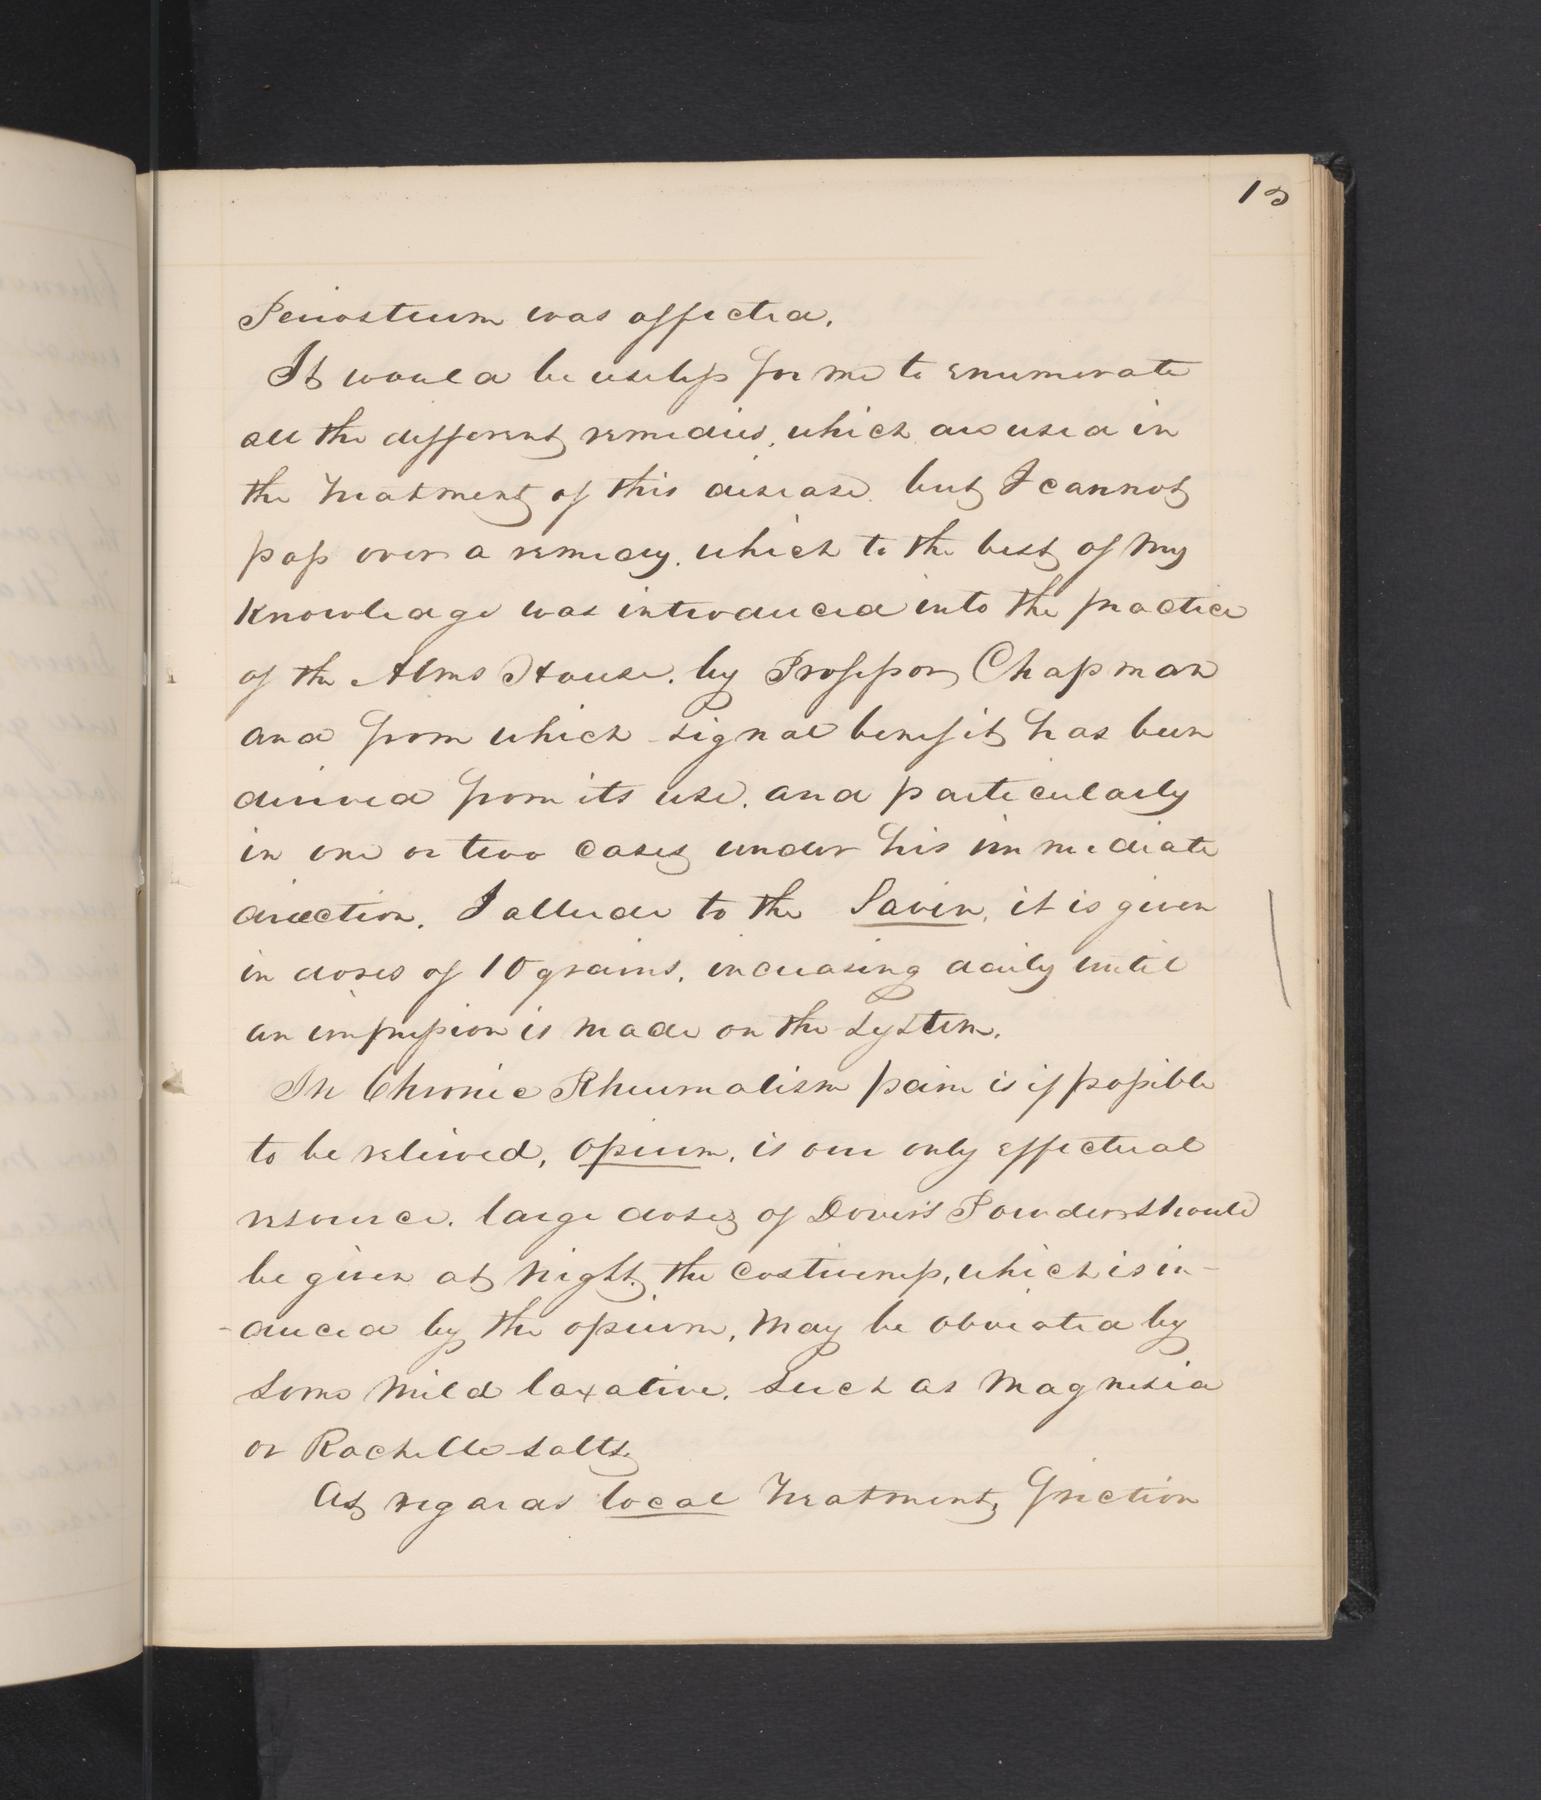 13
Periosteum was affected.
It would be useless for me to enumerate
all the different remedies, which are used in
the treatment of this disease. but I cannot
pass over a remedy, which to the best of my
knowledge was introduced into the practice
of the Alms House, by Professor Chapman
and from which signal benefit has been
derived from its use, and particularly
in one or two cases under his immediate
direction. I allude to the Savin, it is given
in doses of 10 grains, increasing daily until
an impression is made on the system.
In Chronic Rheumatism pain is if possible
to be relieved, opium, is our only effectual
resource. large doses of Dover's Powders should
be given at night. the costiveness, which is in-
-duced by the opium, may be obviated by
some mild laxative. such as Magnesia
or Rochelle salts.
As regards local treatment, friction